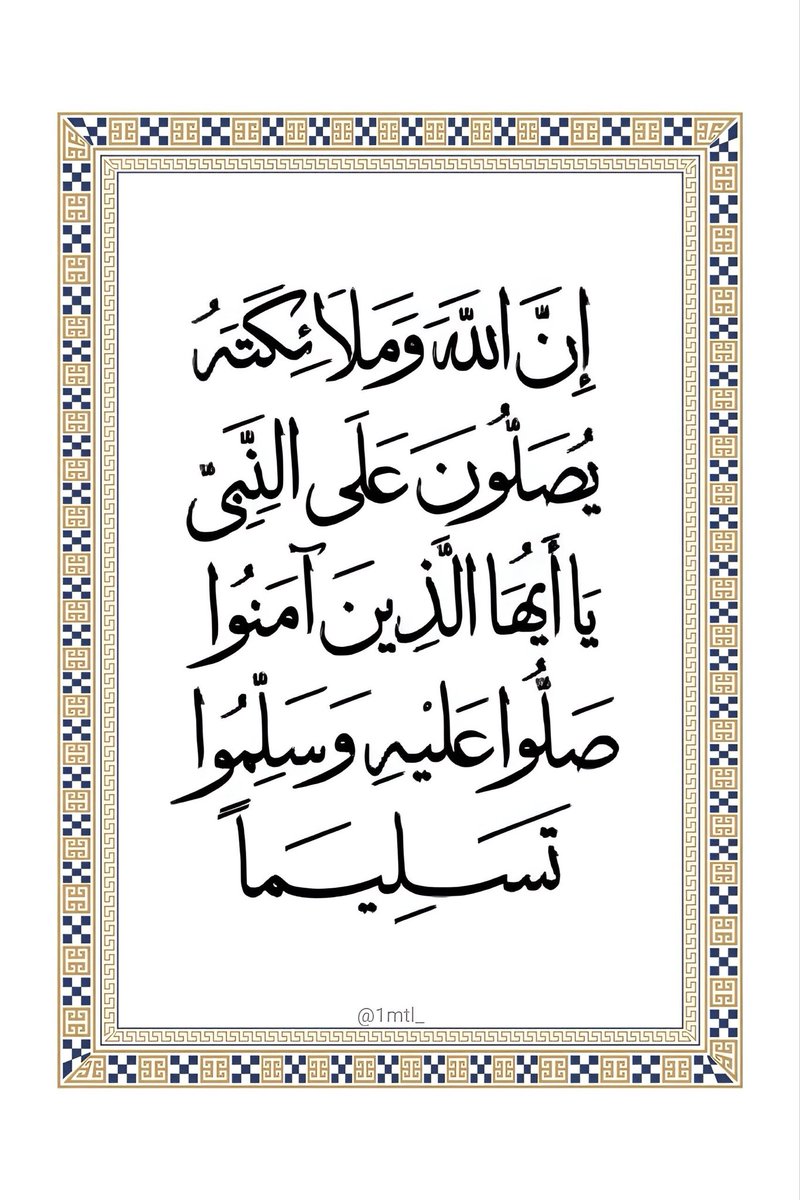 إِنَّ اللَّهَ وَمَلَائِكَتَهُ
يُصَلُّونَ عَلَى النَّبِيِّ
يَا أَيُّهَا الَّذِينَ آمَنُوا
صَلُّوا عَلَيْهِ وَسَلِّمُوا
تَسْلِيمًا
@1mtl_